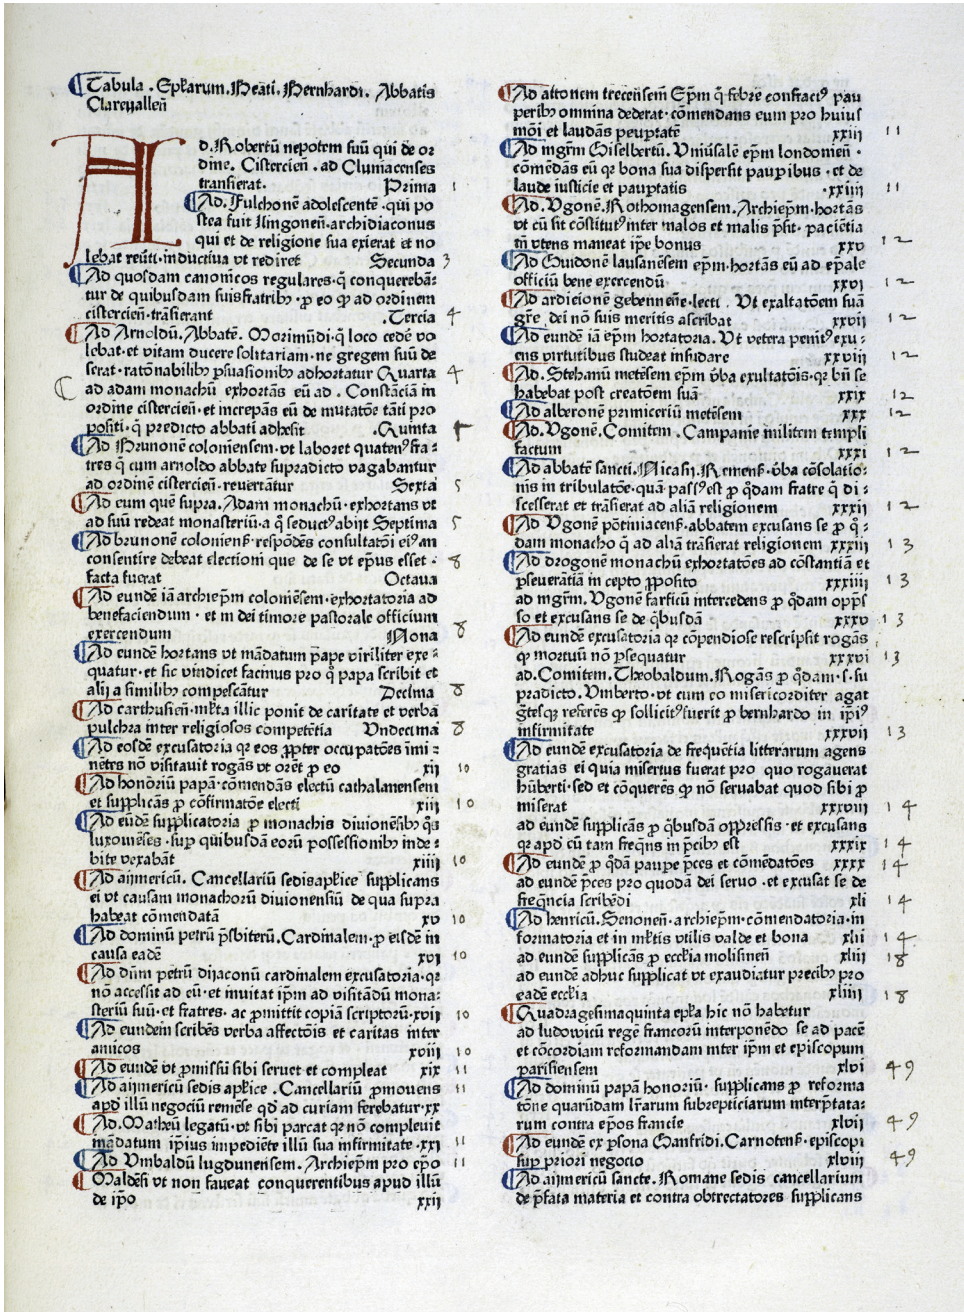 Tabula . Epl̄arum . Beati . Bernhardi . Abbatis
Clareuallen̄
Ad . Robertū nepotem suū qui de or
dine . Cistercien̄ . ad Cluniacenses
transierat . Prima 1
Ad . Fulchonē adolescentē . qui po
stea fuit lingonen̄ . archidiaconus
qui et de religione sua exierat et no
lebat reūti . inductiua vt rediret Secunda 3
Ad quosdam canonicos regulares . q̄ conquerebā⸗
tur de quibusdam suis fratribꝰ . ꝓ eo ꝙ ad ordinem
cistercien̄ . trāsierant . Tercia 4
Ad Arnoldū . Abbatē . Morimūdi . q̄ loco cedē vo
lebat . et vitam ducere solitariam . ne gregem suū de
serat . ratōnabilibꝰ ꝑsuasionibꝰ adhortatur Quarta 4
ad adam monachū exhortās eū ad . Constāciā in
ordine cistercien̄ . et increpās eū de mutatōe tāti pro
positi . q̄ predicto abbati adhesit . Quinta
Ad Brunonē coloniensem . vt laboret quatenꝰ fra⸗
tres q̄ cum arnoldo abbate supradicto vagabantur
ad ordinē cistercien̄ . reuertātur Sexta 5
Ad eum quē supra . Adam monachū . exhortans vt
ad suū redeat monasteriū . a q̄ seductꝰ abijt Septima 5
Ad brunonē coloniens̄ . respōdēs consultatōi eiꝰ an
consentire debeat electioni que de se vt ep̄us esset . 8
facta fuerat Octaua
Ad eundē iā archiep̄m coloniēsem . exhortatoria ad
benefaciendum . et in dei timore pastorale officium
exercendum Nona 8
Ad eundē hortans vt mādatum pape viriliter exe⸗
quatur . et sic vindicet facinus pro q̄ papa scribit et
alij a similibꝰ compescātur Decima 8
Ad carthusien̄ . ml̄ta illic ponit de caritate et verba
pulchra inter religiosos competētia Vndecima 8
Ad eosdē excusatoria qꝛ eos ꝓpter occupatōes īmi⸗
nētes nō visitauit rogās vt orēt ꝓ eo xij 10
Ad honoriū papā . cōmendās electū cathalanensem
et supplicās ꝓ cōfirmatōe electi xiij 10
Ad eūdē supplicatoria ꝓ monachis diuionēsibꝰ q̄s
luxouiēses . suꝑ quibusdā eorū possessionibꝰ inde⸗
bite vexabāt xiiij 10
Ad aijmericū . Cancellariū sedis apl̄ice supplicans
ei vt causam monachorū diuionensiū de qua supra
habeat cōmendatā xv 10
Ad dominū petrū p̄sbiterū . Cardinalem . ꝓ eisdē in
causa eadē xvi 10
Ad dūm petrū dijaconū cardinalem excusatoria . qꝛ
nō accessit ad eū . et inuitat ip̄m ad visitādū mona⸗
steriū suū . et fratres . ac ꝓmittit copiā scriptorū . xvij 10
Ad eundem scribēs verba affectōis et caritas inter
amicos xviij 10
Ad eundē vt ꝓmissū sibi seruet et compleat xix 11
Ad aijmericū sedis apl̄ice . Cancellariū ꝓmouens 11
apd̄ illū negociū remēse qd̄ ad curiam ferebatur . xx
Ad . Matheū legatū . vt sibi parcat qꝛ nō compleuit
mādatum ip̄ius impediēte illū sua infirmitate . xxi 11
Ad Vmbaldū lugdunensem . Archiep̄m pro ep̄o 11
Maldēsi vt non faueat conquerentibus apud illū
de ip̄o xxij
Ad attonem trecensem Ep̄m q̄ febre confractꝰ pau
peribꝰ omnina dederat . cōmendans eum pro huius
mōi et laudās peupertatē xxiij 11
Ad mgr̄m Giselbertū . Vniūsalē ep̄m londonien̄ .
cōmēdās eū qꝛ bona sua dispersit pauꝑibus . et de
laude iusticie et pauꝑtatis . xxiiij 11
Ad . Vgonē . Rothomagensem . Archiep̄m . hortās
vt cū sit cōstitutꝰ inter malos et malis p̄sit . paciētia
tn̄ vtens maneat ip̄e bonus xxv 12
Ad Guidonē lausanēsem ep̄m . hortās eū ad ep̄ale
officiū bene exercendū xxvi 12
Ad ardicionē gebennen̄e . lecti . Vt exaltatōem suā
gr̄e dei nō suis meritis ascribat xxvij 12
Ad eundē iā ep̄m hortatoria . Vt vetera penitꝰ exu⸗
ens virtutibus studeat insidare xxviij 12
Ad . Stehanū metēsem ep̄m v̄ba exultatōis . qꝛ bn̄ se
habebat post creatōem suā xxix 12
Ad alberonē primiceriū metēsem xxx 12
Ad . Vgonē . Comitem . Campanie militem templi
factum xxxi 12
Ad abbatē sancti . Nicasij . Remens̄ . v̄ba cōsolatio⸗
nis in tribulatōe . quā passꝰ est ꝓ q̄dam fratre q̄ di⸗
scesserat et trāsierat ad aliā religionem xxxij 12
Ad Vgonē pōtiniacens̄ . abbatem excusans se ꝓ q̄⸗
dam monacho q̄ ad aliā trāsierat religionem xxxiij 13
Ad drogonē monachū exhortatōes ad cōstantiā et
ꝑseuerātiā in cepto ꝓposito xxxiiij 13
ad mgr̄m . Vgonē farsicū intercedens ꝓ q̄dam opp̄s
so et excusans se de q̄busdā xxxv 13
Ad eundē excusatoria qꝛ cōpendiose rescripsit rogās
ꝙ mortuū nō ꝑsequatur xxxvi 13
ad . Comitem . Theobaldum . Rogās ꝓ q̄dam . s . su
pradicto . Vmberto . vt cum eo misericorditer agat
ḡtesqꝫ referēs ꝙ sollicitꝰ fuerit ꝓ bernhardo in ip̄iꝰ
infirmitate xxxvij 13
Ad eundē excusatoria de frequētia litterarum agens
gratias ei quia misertus fuerat pro quo rogauerat
hūberti . sed et cōquerēs ꝙ nō seruabat quod sibi ꝓ
miserat xxxviij 14
ad eundē supplicās ꝓ q̄busdā oppressis . et excusans
qꝛ apd̄ eū tam freq̄ns in p̄cibꝰ est xxxix 14
Ad eundē ꝓ q̄dā pauꝑe p̄ces et cōmēdatōes xxxx 14
ad eundē p̄ces pro quodā dei seruo . et excusat se de
freq̄ncia scribēdi xli 14
Ad henricū . Senonen̄ . archiep̄m . cōmendatoria . in
formatoria et in ml̄tis vtilis valde et bona xlij 14
ad eundē supplicās ꝓ eccl̄ia molisinen̄ xliij 18
ad eundē adhuc supplicat vt exaudiatur precibꝰ pro
eadē eccl̄ia xliiij 18
Quadragesimaquinta epl̄a hic nō habetur
ad ludowicū regē francorū interponēdo se ad pacē
et cōcordiam reformandam inter ip̄m et episcopum
parisiensem xlvi 49
Ad dominū papā honoriū . supplicans ꝓ reforma
tōne quarūdam lr̄arum subrepticiarum interp̄tata⸗
rum contra ep̄os francie xlvij 49
Ad eundē ex ꝑsona Ganfridi . Carnotens̄ . episcopi
suꝑ priori negocio xlviij 49
Ad aijmericū sancte . Romane sedis cancellarium
de p̄fata materia et contra obtrectatores supplicans